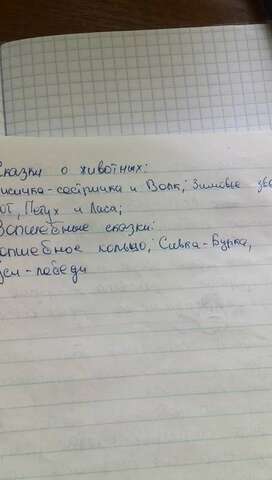 сказки о животных:
исичка-сестричка и Волк, Зимовье зве
от, Петух и Лиса;
Волшебные сказки:
олшебное кольцо, Сивка-Бурка,
уси-лебеди